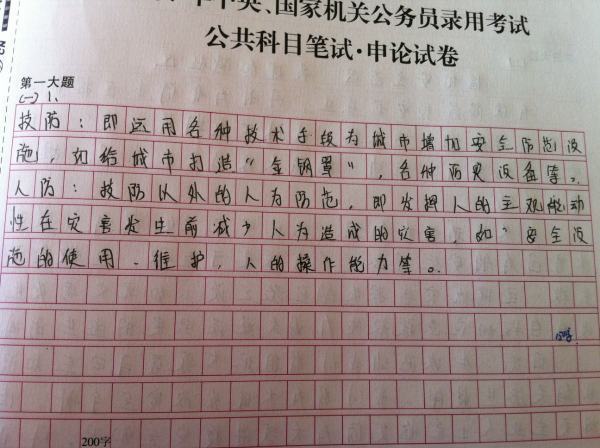 中央、国家机关公务员录用考试
公共科目笔试·申论试卷
第一大题
(一)1、
技防：即运用各种技术手段为城市增加安全防范设
施，如给城市打造“金钢罩”，各种预灾设备等。
人防：技防以外的人为防范，即发挥人的主观能动
性在灾害发生前减少人为造成的灾害，如“安全设
施的使用、维护，人的操作能力等。
200字